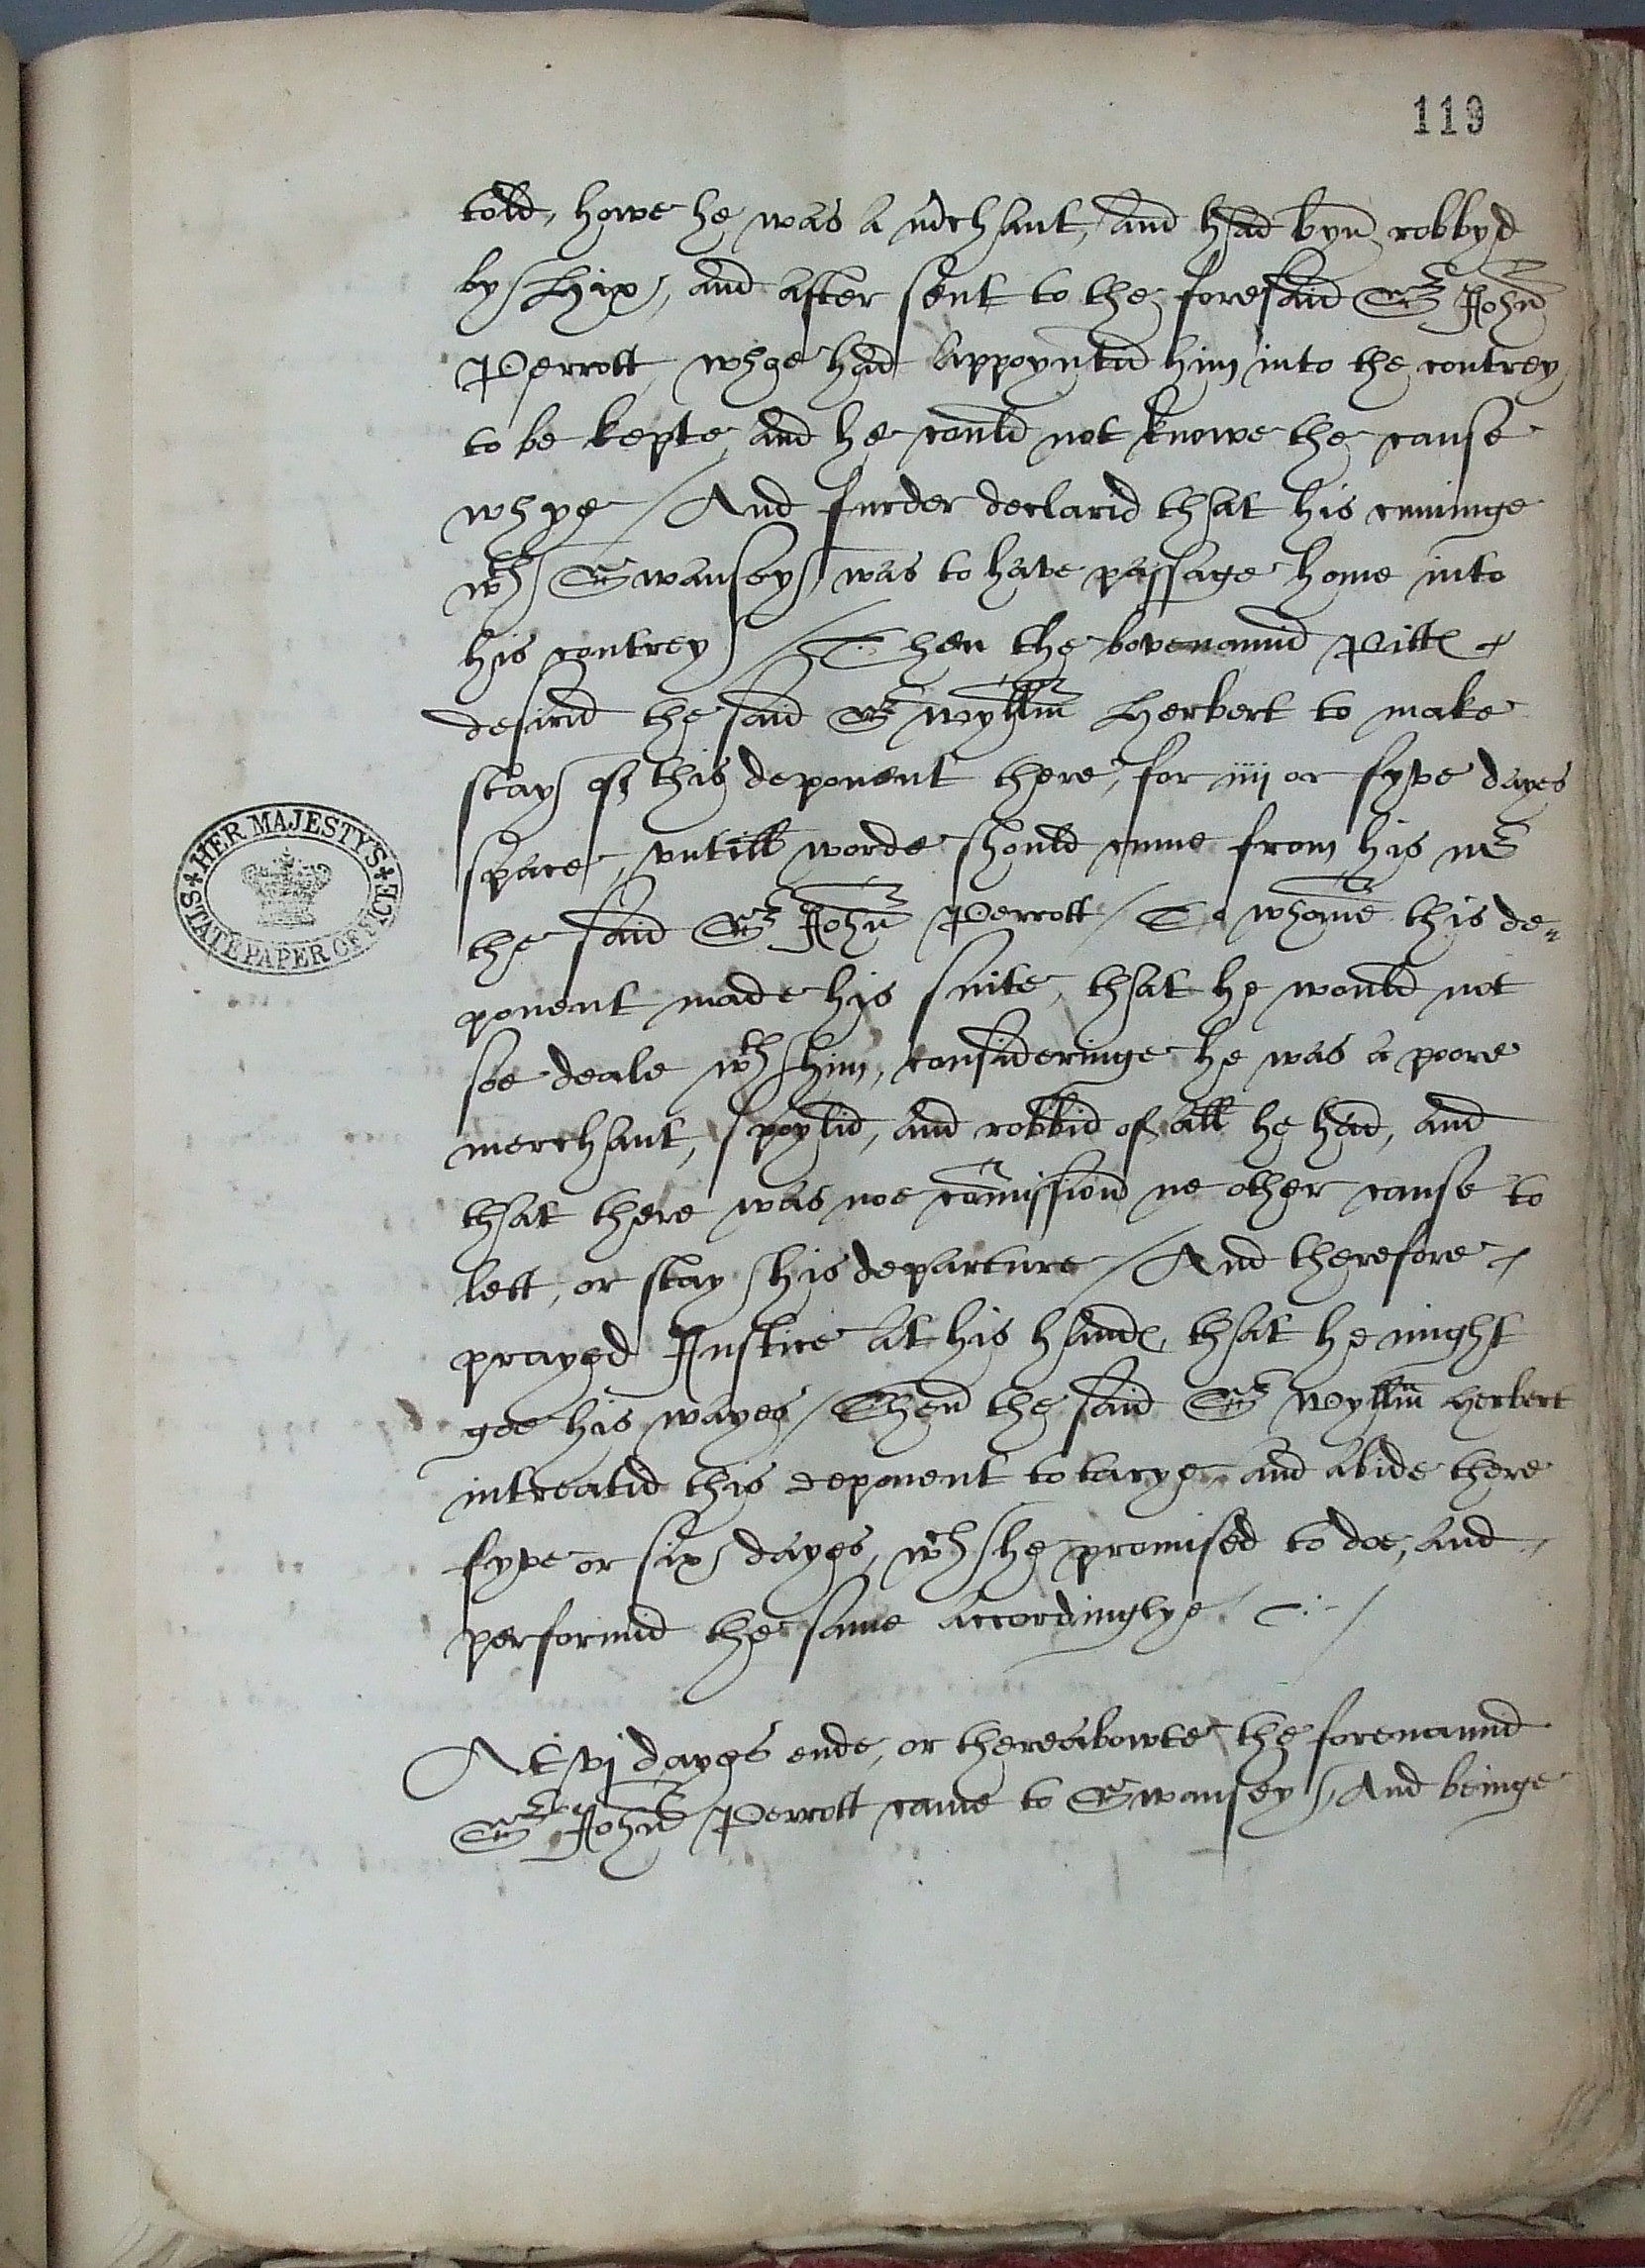 119
told, howe he was a m̃chant, and had byn robbyd
by Hix, and after sent to the foresaid Sr John
Perrott, whoe had appoynted him into the contrey
to be kepte, and he could not knowe the cause
whye / And furder declarid that his cuminge
wth Swansey, was to have passage home into
his contrey / Then the bovenamid Pitt
desirid the said Sr Wyllm̃ Herbert to make
stay of this deponent there, for iiij or fyve dayes
space, untill worde should cume from his mr
the said Sr John Perrott / To whome this de=
ponent made his suite, that he would not
soe deale wth him, consideringe he was a poore
merchant, spoylid, and robbid of all he had, and
that there was noe com̃ission ne other cause to
lett, or stay his departure / And therefore
prayed Justice at his hands, that he might
goe his wayes / Then the said Sr Wyllm̃ Herbert
intreatid this deponent to tarye, and abide there
fyve or six dayes, wch he promised to doe, and
performid the same accordinglye. /
HER MAJESTY'S
STATE PAPER OFFICE
At vj dayes ende, or thereabowte the forenamid
Sr John Perrott came to Swansey, And beinge